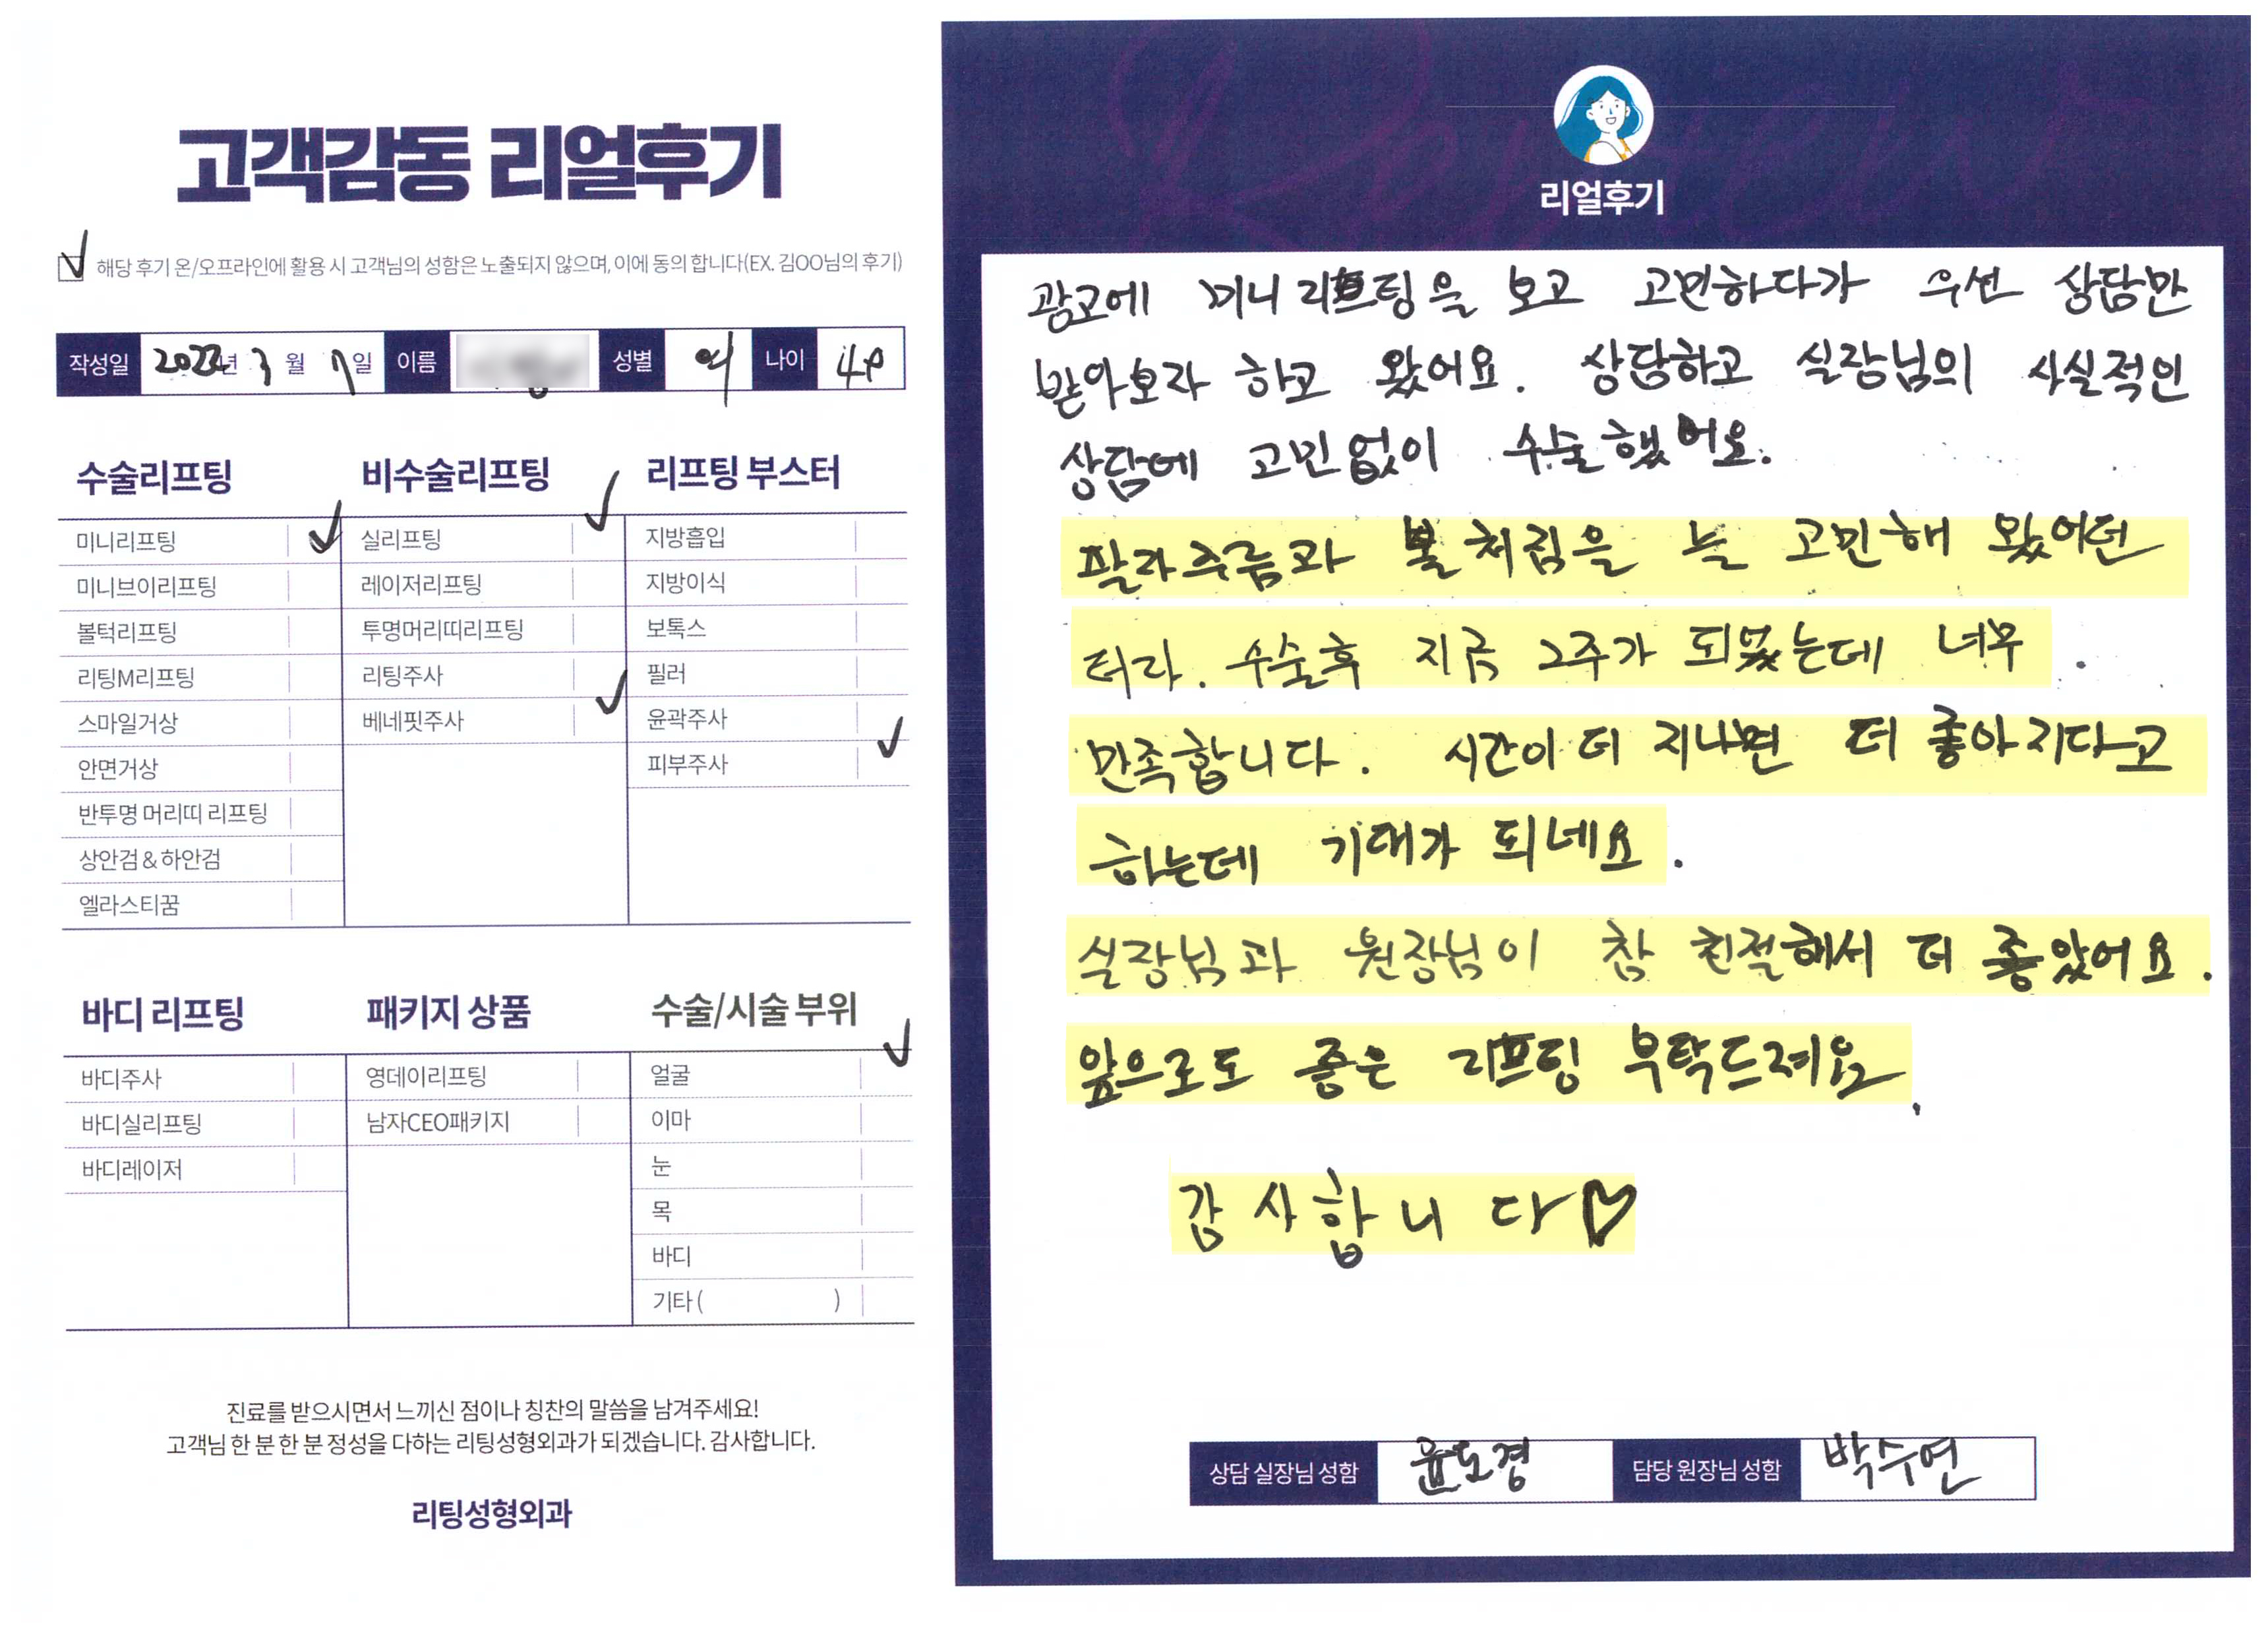 고객감동 리얼후기
해당 후기 온/오프라인에 활용 시 고객님의 성함은 노출되지 않으며, 이에 동의 합니다(EX. 김OO님의 후기)
작성일 2022년 3월 7일 이름 성별 여 나이
수술리프팅
미니리프팅
미니브이리프팅
볼턱리프팅
리팅M리프팅
스마일거상
안면거상
반투명 머리띠 리프팅
상안검 & 하안검
엘라스티꿈
비수술리프팅
실리프팅
레이저리프팅
투명머리띠리프팅
리팅주사
베네핏주사
리프팅 부스터
지방흡입
지방이식
보톡스
필러
윤곽주사
피부주사
바디 리프팅
바디주사
바디실리프팅
바디레이저
패키지 상품
영데이리프팅
남자CEO패키지
수술/시술 부위
얼굴
이마
눈
목
바디
기타 ( )
진료를 받으시면서 느끼신 점이나 칭찬의 말씀을 남겨주세요!
고객님 한 분 한 분 정성을 다하는 리팅성형외과가 되겠습니다. 감사합니다.
리팅성형외과
리얼후기
광고에 미니리프팅을 보고 고민하다가 우선 상담만
받아보라 하고 왔어요. 상담하고 실장님의 사실적인
상담에 고민없이 수술했어요.
팔라주름과 볼처짐을 늘 고민해 왔었던
터라. 수술후 지금 2주가 되었는데 너무
만족합니다. 시간이 더 지나면 더 좋아지다고
하는데 기대가 되네요.
실장님과 원장님이 참 친절해서 더 좋았어요.
앞으로도 좋은 리프팅 부탁드려요.
감사합니다♡
상담 실장님 성함 윤도경 담당 원장님 성함 박수연